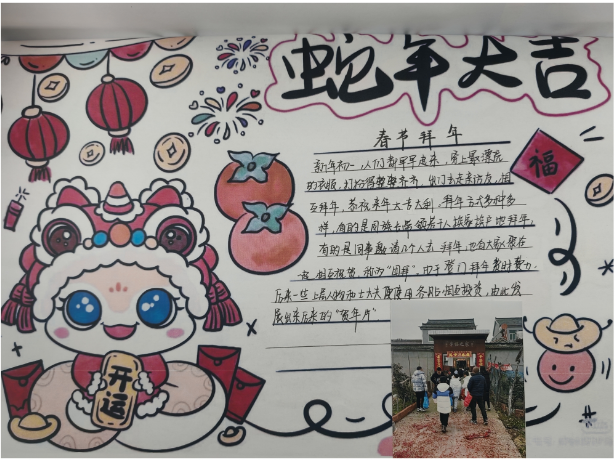 蛇年大吉
春节拜年
新年初一,人们都早早起来,穿上最漂亮
的衣服,打扮得整整齐齐,出门去走亲访友,相
互拜年,恭祝来年大吉大利,拜年方式多种多
样,有的是同族长带领若干人挨家挨户地拜年,
有的是同事相邀几个人去拜年,也有大家聚在
一起相互祝贺,称为“团拜”。由于登门拜年费时费力,
后来一些上层人物和士大夫便使用各贴相互投贺,由此发
展出来后来的“贺年片”
福
开运